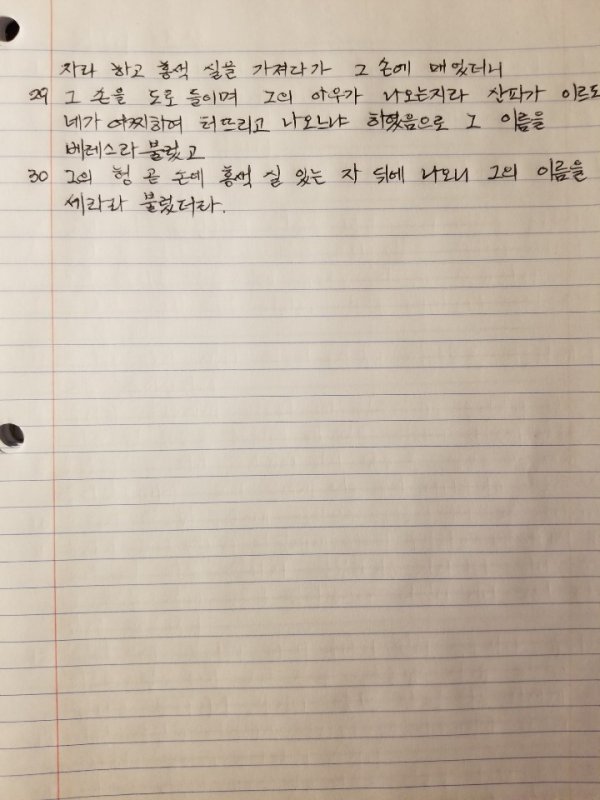 자라 하고 홍색 실을 가져다가 그 손에 매었더니
29 그 손을 도로 들이며 그의 아우가 나오는지라 산파가 이르되
네가 어찌하여 터뜨리고 나오느냐 하였음으로 그 이름을
베레스라 불렀고
30 그의 형 곧 손에 홍색 실 있는 자 뒤에 나오니 그의 이름을
세라라 불렀더라.